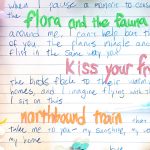 when I pause a moment to consid
the flora and the fauna
around me, I can't help but th
of you. The plants mingle and
flirt in the same way you
Kiss your fr
the birds flock to their
homes, and I imagine flying with t
I sit on this
northbound train that
take me to you - my sunshine, my
my home.